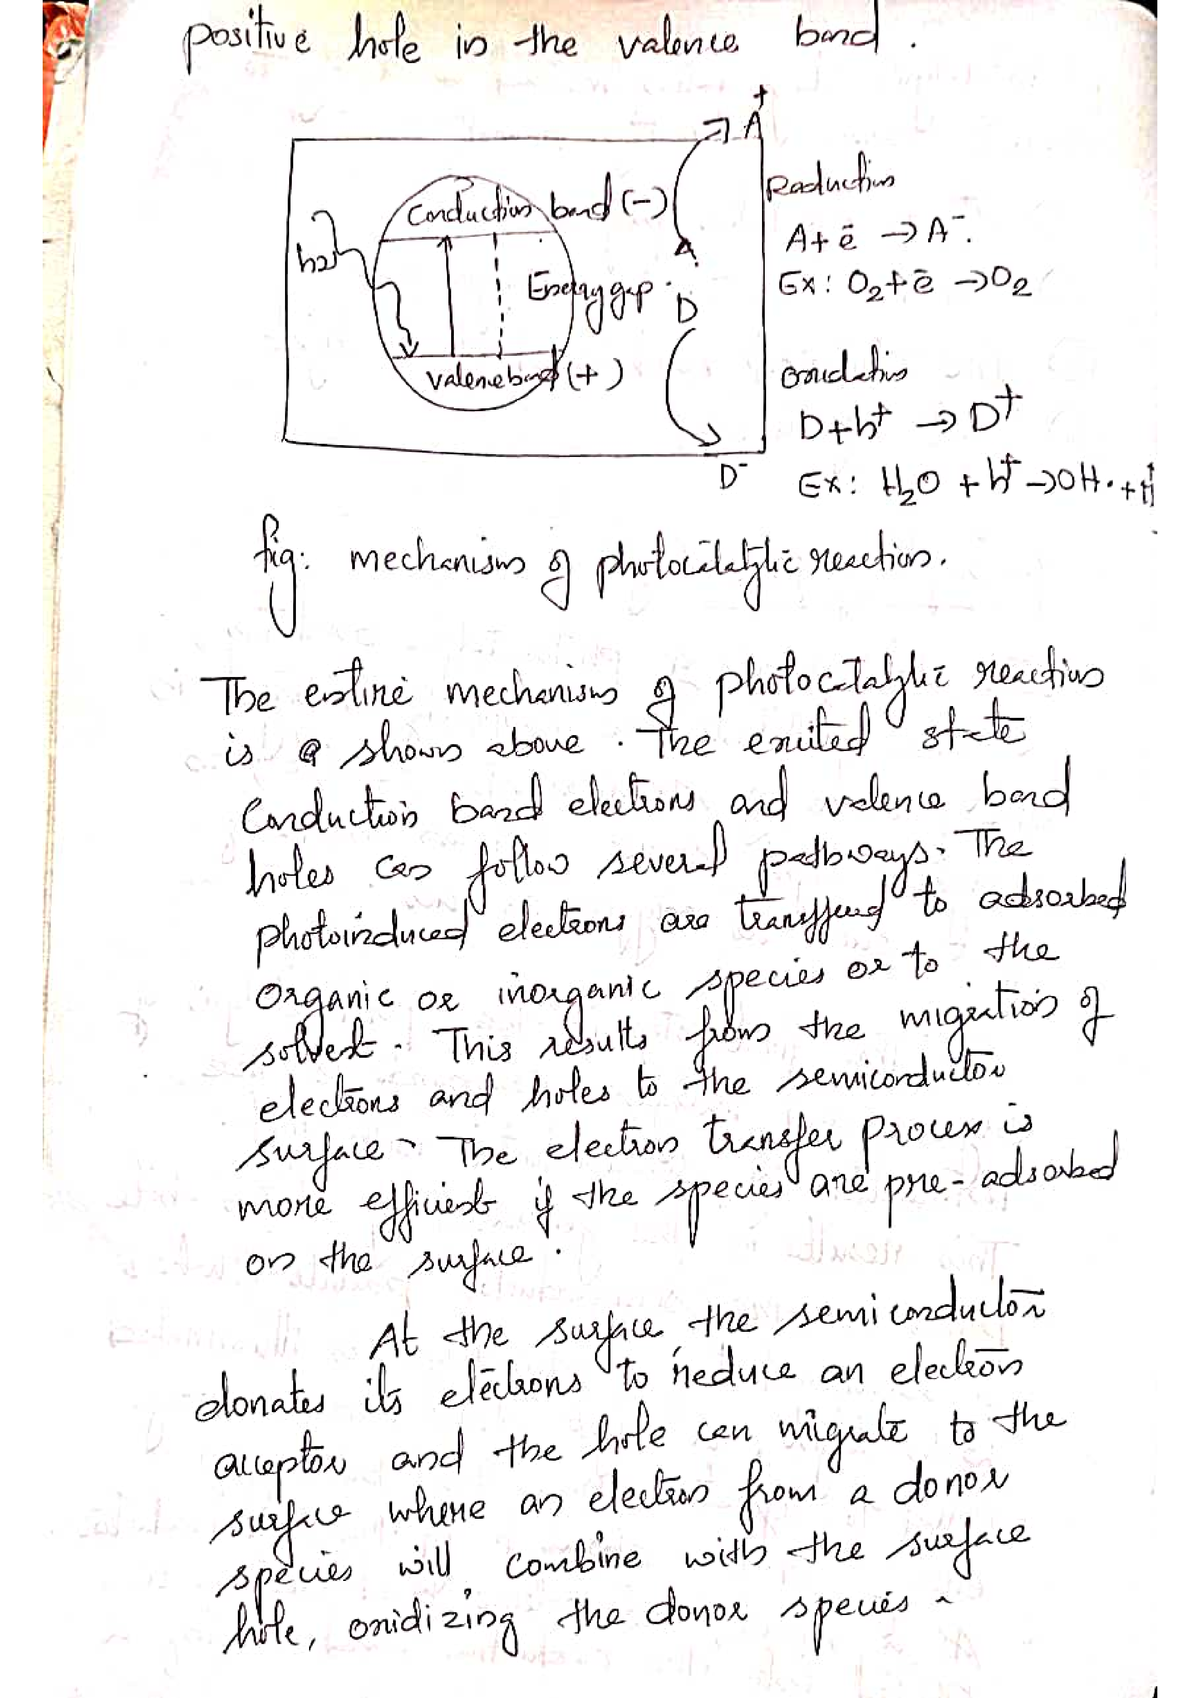 positive hole in the valence band.
A+
Conduction band (-)
hν
A
Energy gap
D
Valence band (+)
D-
Reduction
A + ē → A-.
Ex: O2 + ē → O2
oxidation
D + h+ → D+
Ex: H2O + h+ → OH. + H+
fig: mechanism of photocatalytic reaction.
The entire mechanism of photocatalytic reaction
is shown above. The excited state
Conduction band electrons and valence band
holes can follow several pathways. The
photoinduced electrons are transffered to adsorbed
organic or inorganic species or to the
solvent. This results from the migration of
electrons and holes to the semiconductor
surface. The electron transfer process is
more efficient if the species are pre-adsorbed
on the surface.
At the surface, the semiconductor
donates its electrons to reduce an electron
acceptor and the hole can migrate to the
surface where an electron from a donor
species will combine with the surface
hole, oxidizing the donor species.